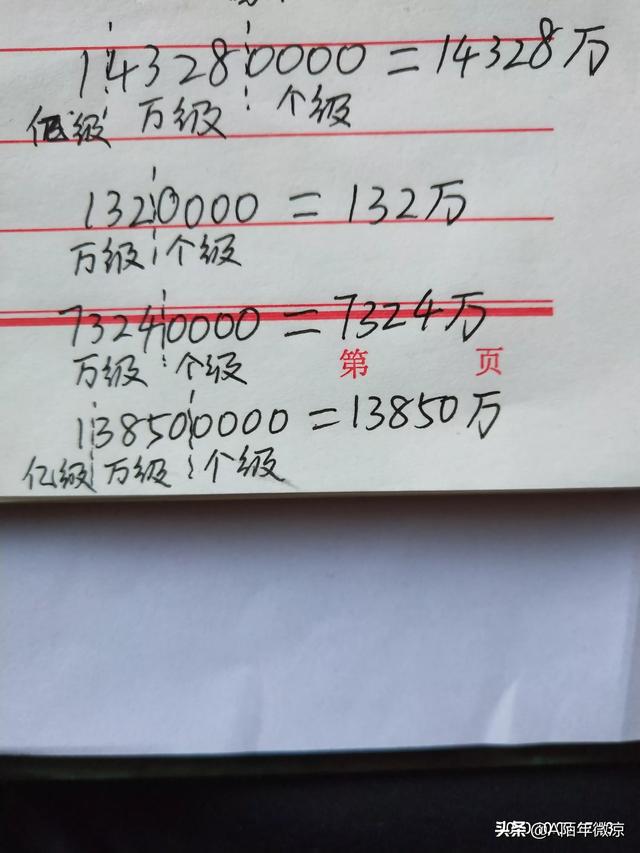 143280000=14328万
亿级 万级 个级
1320000=132万
万级 个级
73240000=7324万
万级 个级
第 页
138500000=13850万
亿级 万级 个级
头条@A陌年微凉